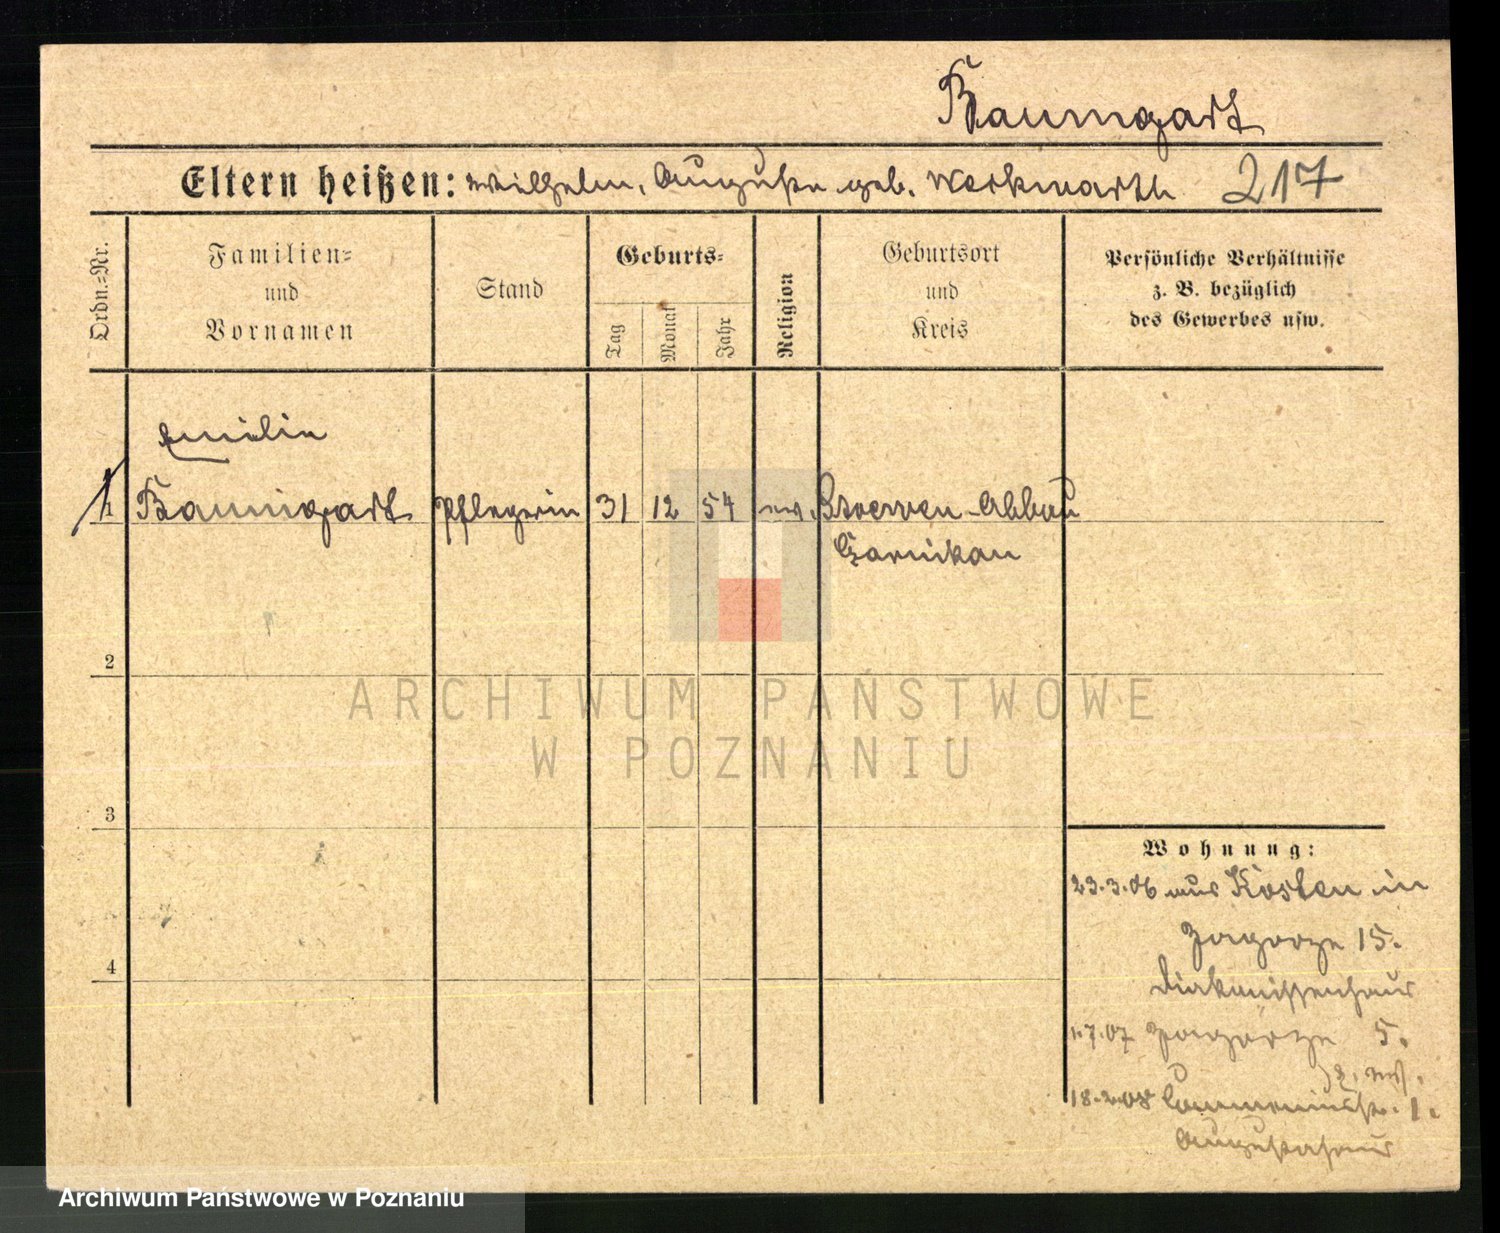 Baumgart
Eltern heißen: Wilhelm, Auguste geb. Werkwarth 217
Ordn.-Nr.
Familien-
und
Vornamen
Stand
Geburts-
Tag
Monat
Jahr
Religion
Geburtsort
und
Kreis
Persönliche Verhältnisse
z. B. bezüglich
des Gewerbes usw.
Emilie
1 Baumgart Pflegerin 31 12 54 ev. Abbau
Czarnikau
2
3
4
Wohnung:
23.3.06 aus Kosten in
Zagorze 15.
Diakonissenhaus
1.7.07 Zagorze 5.
18.2.08 1.
Augustahaus
ARCHIWUM PAŃSTWOWE
W POZNANIU
Archiwum Państwowe w Poznaniu